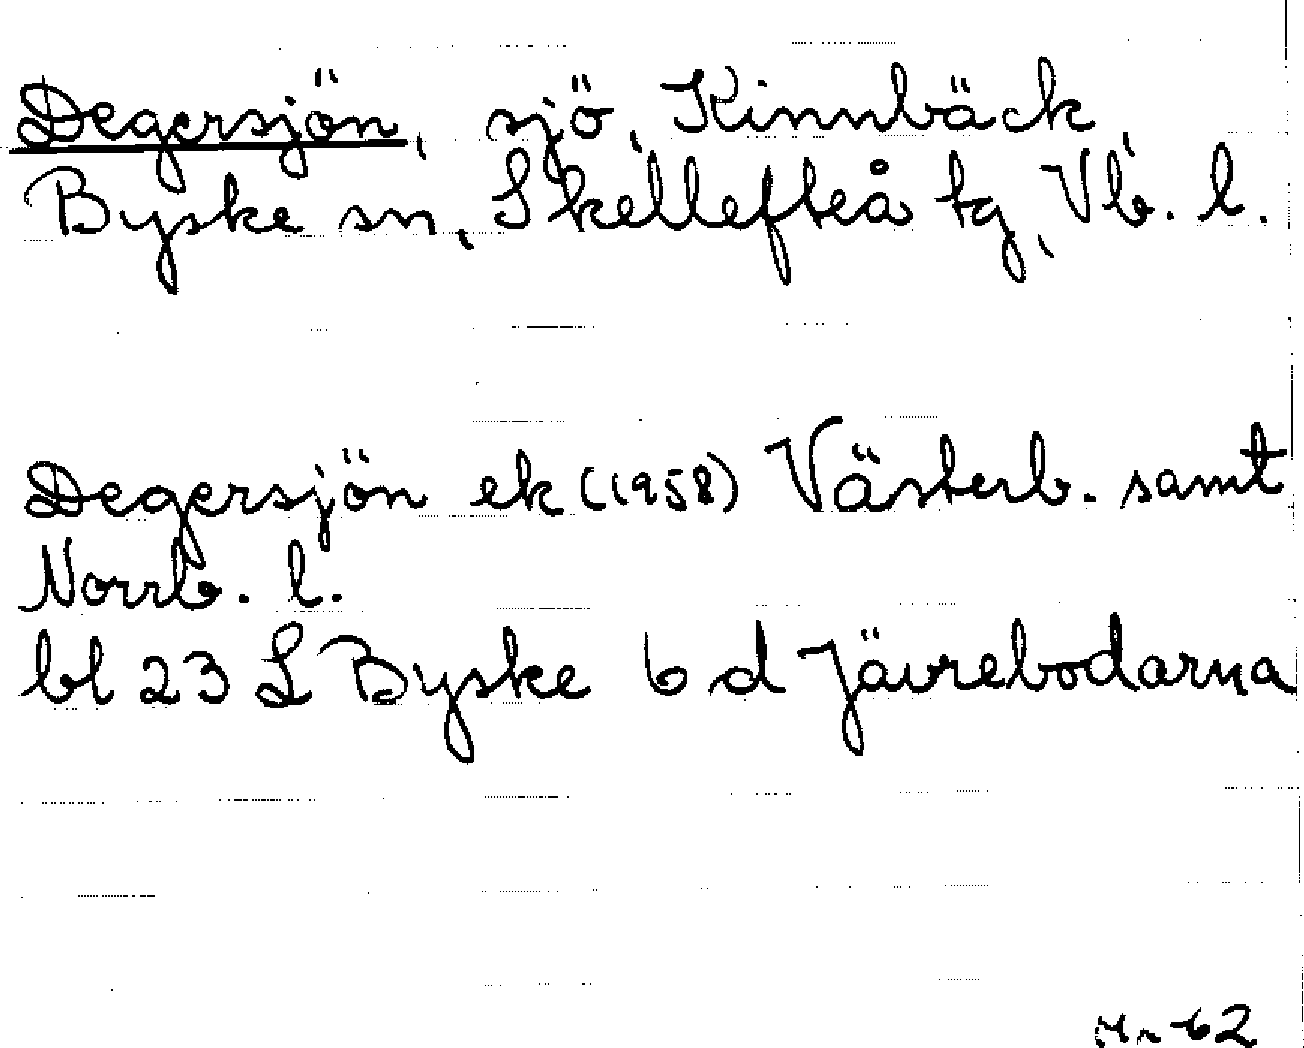 Degersjön, sjö, Kinnbäck,
Byske sn, Skellefteå tg, Vb. l.
Degersjön ek (1958) Västerb. samt
Norrb. l.
bl 23 L Byske 6 d Jävrebodarna
62